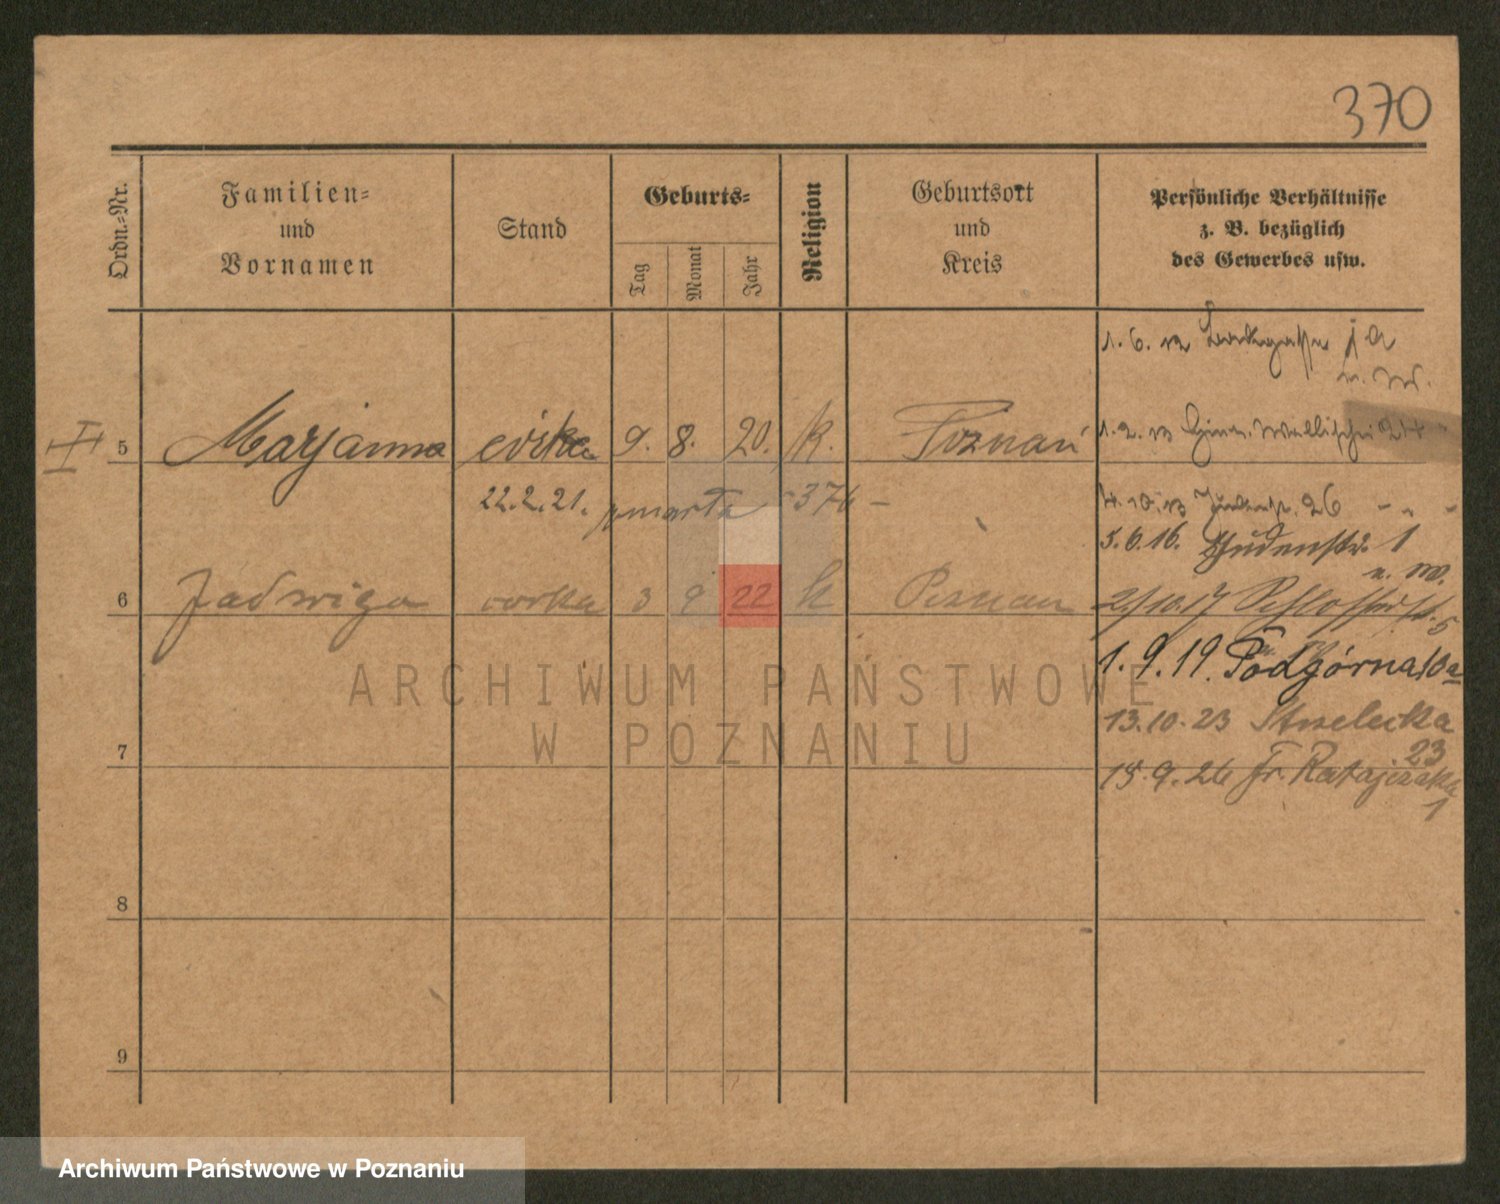 370
Ordn.-Nr.
Familien-
und
Vornamen
Stand
Geburts-
Tag
Monat
Jahr
Religion
Geburtsort
und
Kreis
Persönliche Verhältnisse
z. B. bezüglich
des Gewerbes usw.
1. 6. 12
5 Marjanna córka 9. 8. 20. k. Poznań
22.2.21. zmarła 376 -
6 Jadwiga corka 3 9 22 k Poznan
7
8
9
1. 2. 13 Wallischei 24
4. 10. 13 Judenstr. 26 - " -
5.6.16. Judenstr. 1
u. W.
2/10.17 Schlosserstr. 5
1.9.19. Podgórna 10a
13.10.23 Strzelecka
23
15.9.26 Fr. Ratajczaka
1
ARCHIWUM PAŃSTWOWE
W POZNANIU
Archiwum Państwowe w Poznaniu